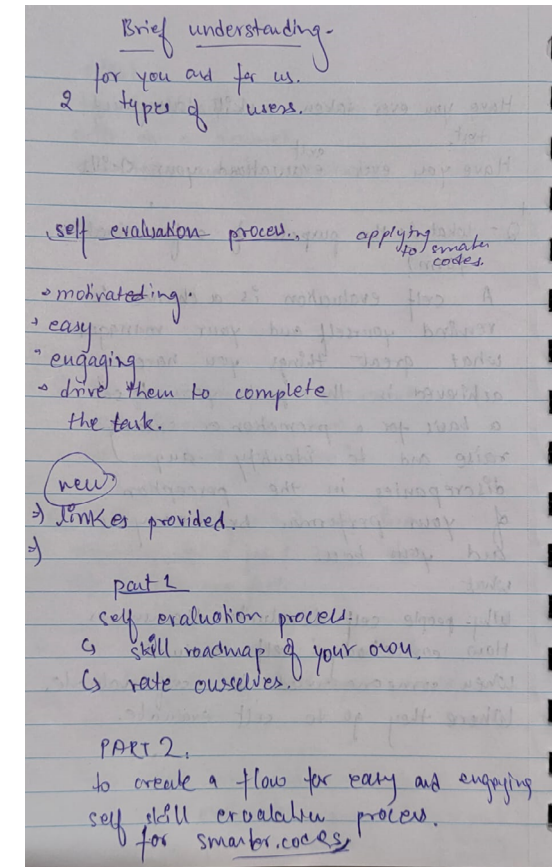 Brief understanding-
for you and for us.
2 types of users.
self evaluation process. applying
to smater
codes.
motivateding.
easy
engaging
drive them to complete
the task.
new
=) linkes provided.
=)
part 1
self evaluation process.
skill roadmap of your own.
rate ourselves.
PART 2.
to create a flow for easy and engaging
self skill evaluation process.
for smarter.codes